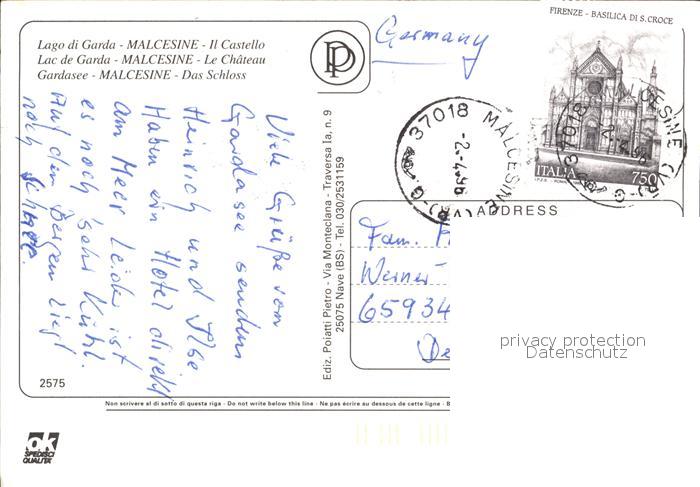 Lago di Garda - MALCESINE - Il Castello
Lac de Garda - MALCESINE - Le Château
Gardasee - MALCESINE - Das Schloss
Germany
FIRENZE - BASILICA DI S. CROCE
ITALIA 750
37018 MALCESINE (VR)
-2.4.96
37018 MALCESINE (VR)
Viele Grüße vom
Gardasee senden
Heinrich und Ilse
Haben ein Hotel direkt
am Meer Leider ist
es noch sehr kühl.
Auf den Bergen liegt
noch Schnee.
Ediz. Poiatti Pietro - Via Monteclana - Traversa 1a, n. 9
25075 Nave (BS) - Tel. 030/2531159
ADDRESS
Fam.
Werner-
65934
De
privacy protection
Datenschutz
2575
Non scrivere al di sotto di questa riga - Do not write below this line - Ne pas écrire au dessous de cette ligne - B
ok
SPEDISCI
QUALITA'